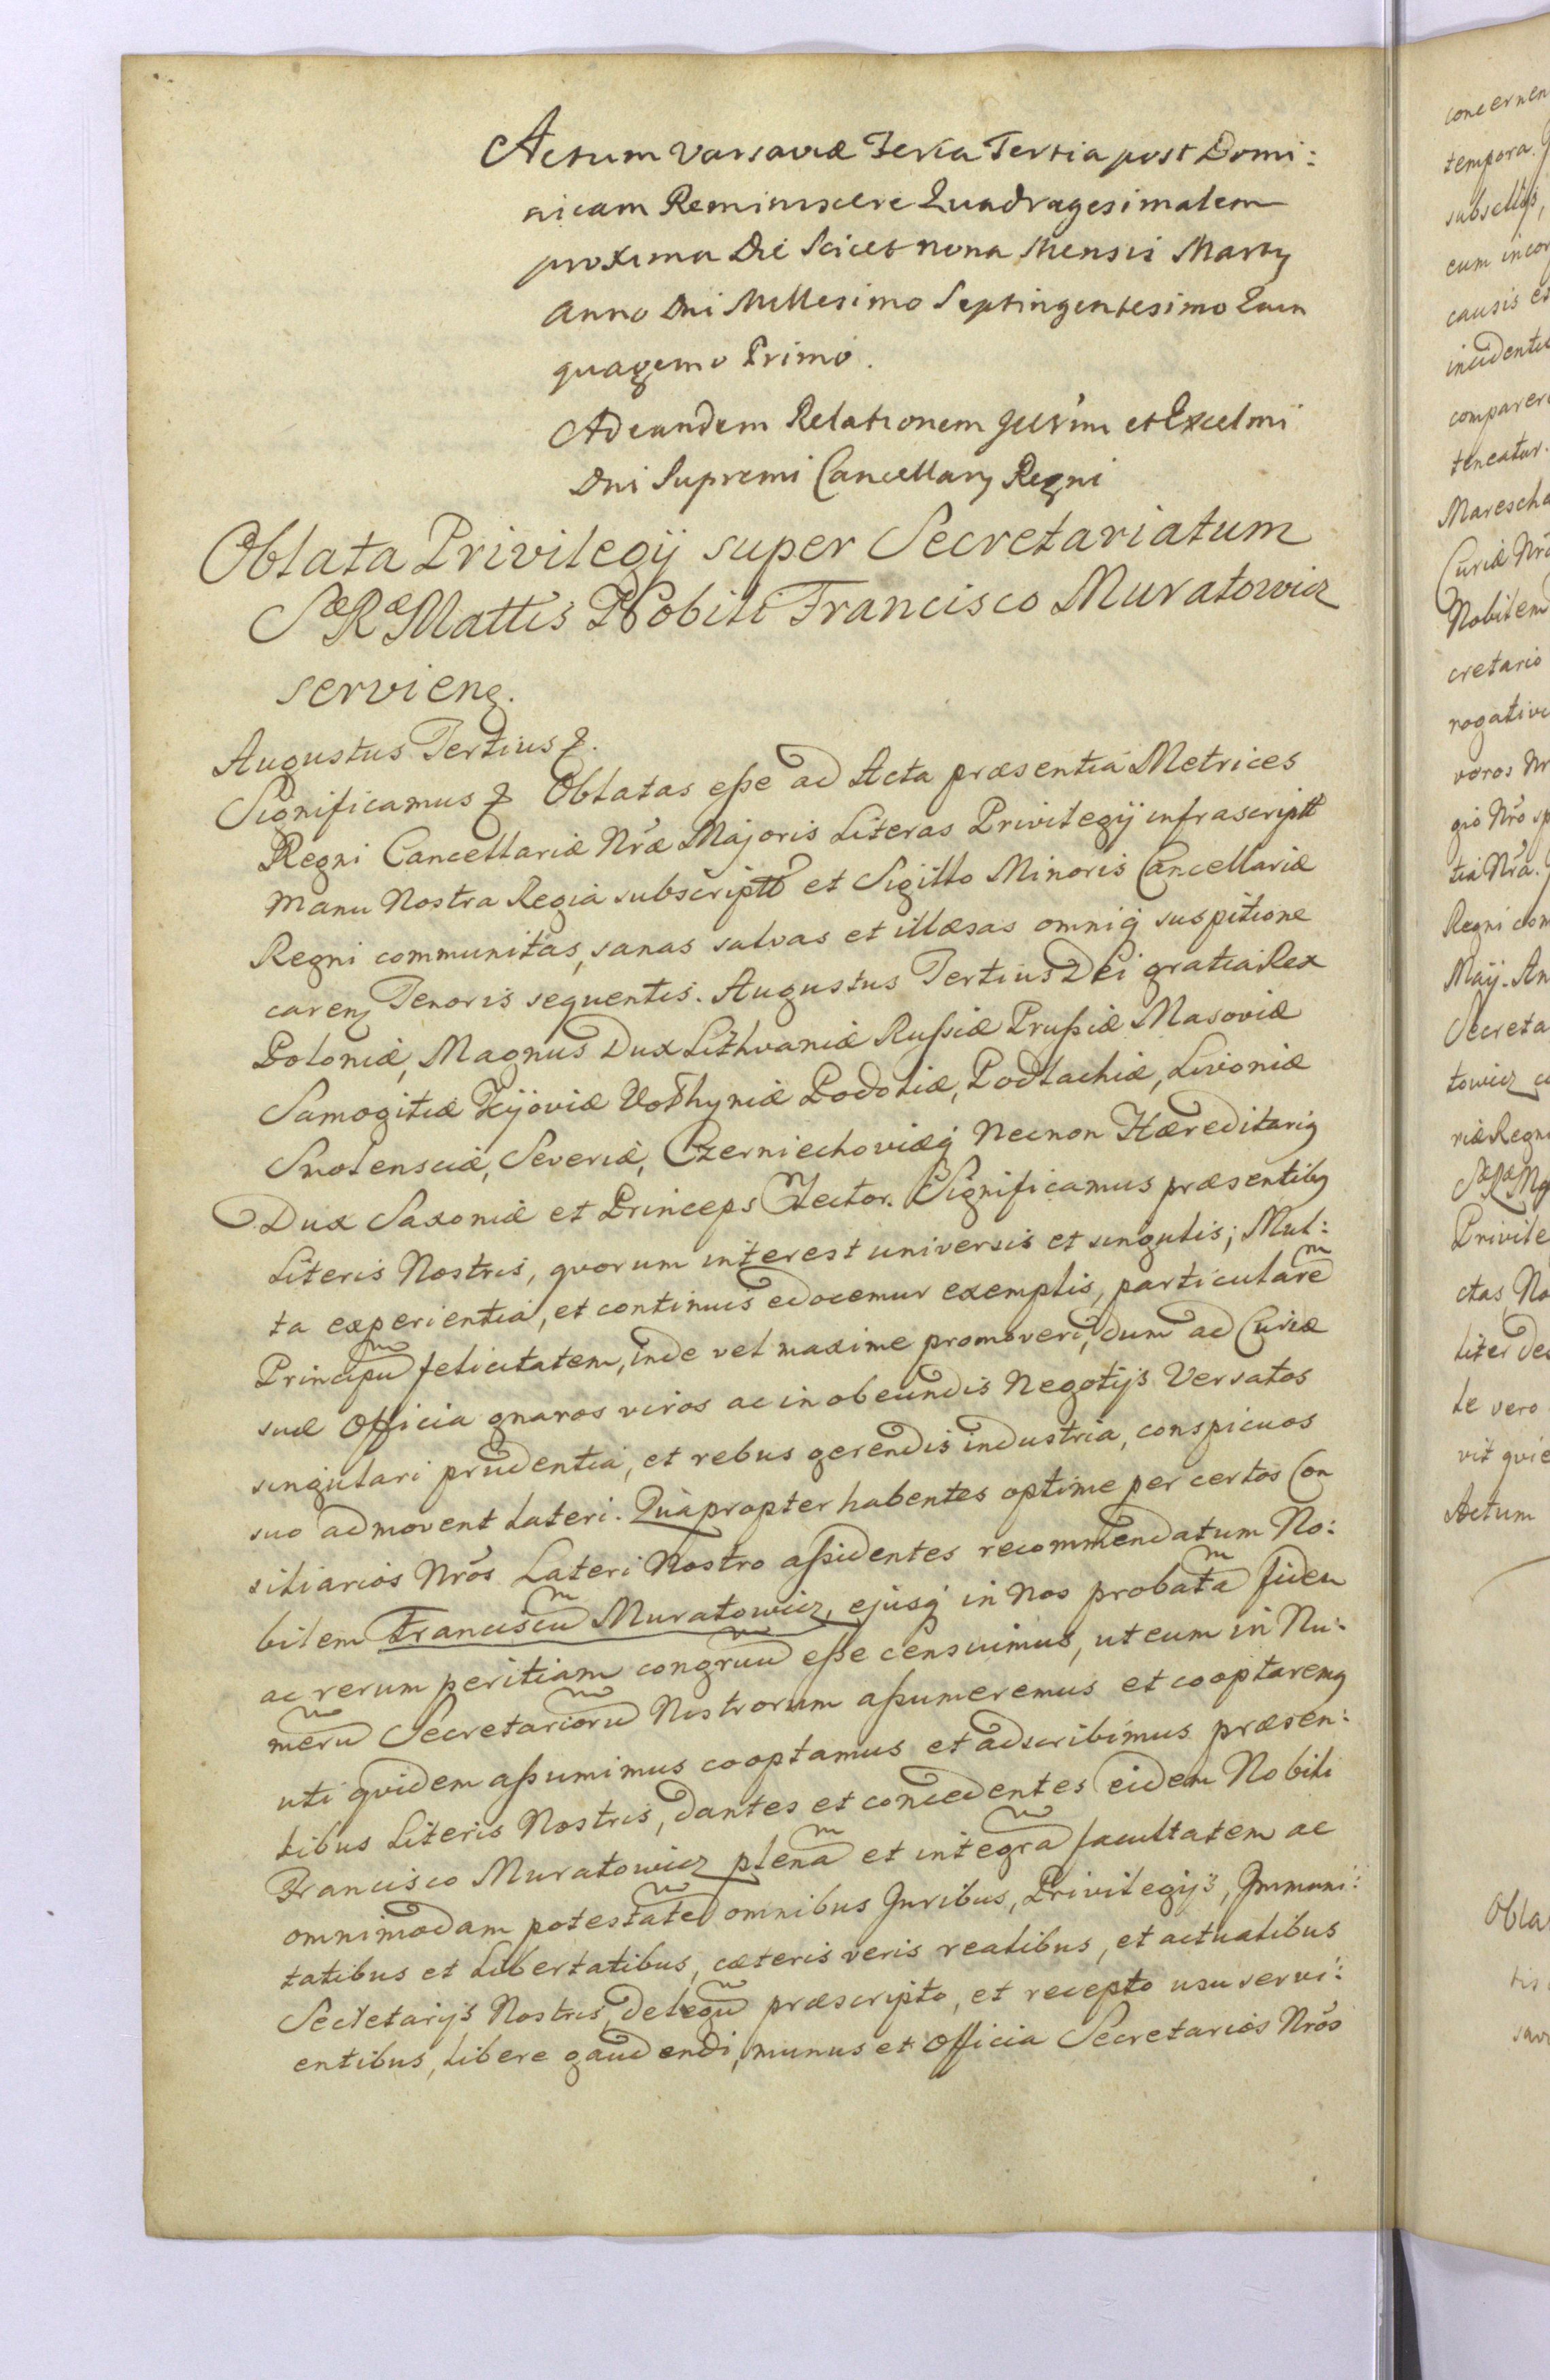 Actum Varsaviæ Feria Tertia post Domi:
nicam Reminiscere Quadragesimalem
proxima Die Scicet nona Mensis Martij
Anno Dni Millesimo Septingentesimo Quin
quagemo Primo.
Ad eandem Relationem et Excelmi
Dni Supremi Cancellarij Regni
Oblata Privilegij super Secretariatum
Sæ Ræ Mattis Nobili Francisco Muratowicz
servieng.
Augustus Tertius &.
Significamus & Oblatas esse ad Acta præsentia Metrices
Regni Cancellariæ Nræ Majoris Literas Privilegij infrascriptt
Manu Nostra Regia subscriptt et Sigillo Minoris Cancellariæ
Regni communitas, sanas salvas et illæsas omniq suspitione
careng Tenoris sequentis. Augustus Tertius Dei gratia Rex
Poloniæ, Magnus Dux Lithvaniæ Russiæ Prussiæ Masoviæ
Samogitiæ Kijoviæ Volhyniæ Podoliæ, Podlachiæ, Livoniæ
Smolensciæ, Severiæ, Czerniechoviæq Necnon Hæreditarig
Dux Saxoniæ et Princeps Elector. Significamus præsentibg
Literis Nostris, quorum interest universis et singulis; Mul:
ta experientia, et continuis edocemur exemplis, particulare͠m
Principu͠m felicitatem, inde vel maxime promoveri, dum ad Curiæ
suæ Officia gnaros viros ac in obeundis Negotijs Versatos
singulari prudentia, et rebus gerendis industria, conspicuos
suo admovent Lateri. Quapropter habentes optime per certos Con
siliarios Nrõs Lateri Nostro assidentes recommendatum No:
bilem Franciscu͠m Muratowicz, ejusq in Nos probata͠m fidem
ac rerum peritiam congruu͠m esse censuimus, ut eum in Nu:
meru͠m Secretarioru͠m Nostrorum assumeremus et cooptaremg
uti quidem assumimus cooptamus et adscribimus præsen:
tibus Literis Nostris, dantes et concedentes eidem Nobili
Francisco Muratowicz plena͠m et integra͠m facultatem ac
omnimodam potestate͠m omnibus Juribus, Privilegijs, Immuni:
tatibus et Libertatibus, cæteris veris realibus, et actualibus
Secretarijs Nostris, de legu͠m præscripto, et recepto usu servi:
entibus, libere gaudendi, munus et Officia Secretarios Nrõs
concernen
tempora.
subsellijs,
cum incor
causis
incidentes
comparere
teneatur.
Marescha
Curiæ Nr
Nobilem
cretario
rogativ
voros Nr
gio Nrõ sp
tia Nrã.
Regni com
Maij. An
Secreta
towicz c
riæ Regni
Privile
ctas, No
liter de
le vero
vit qvie
Actum
Obla